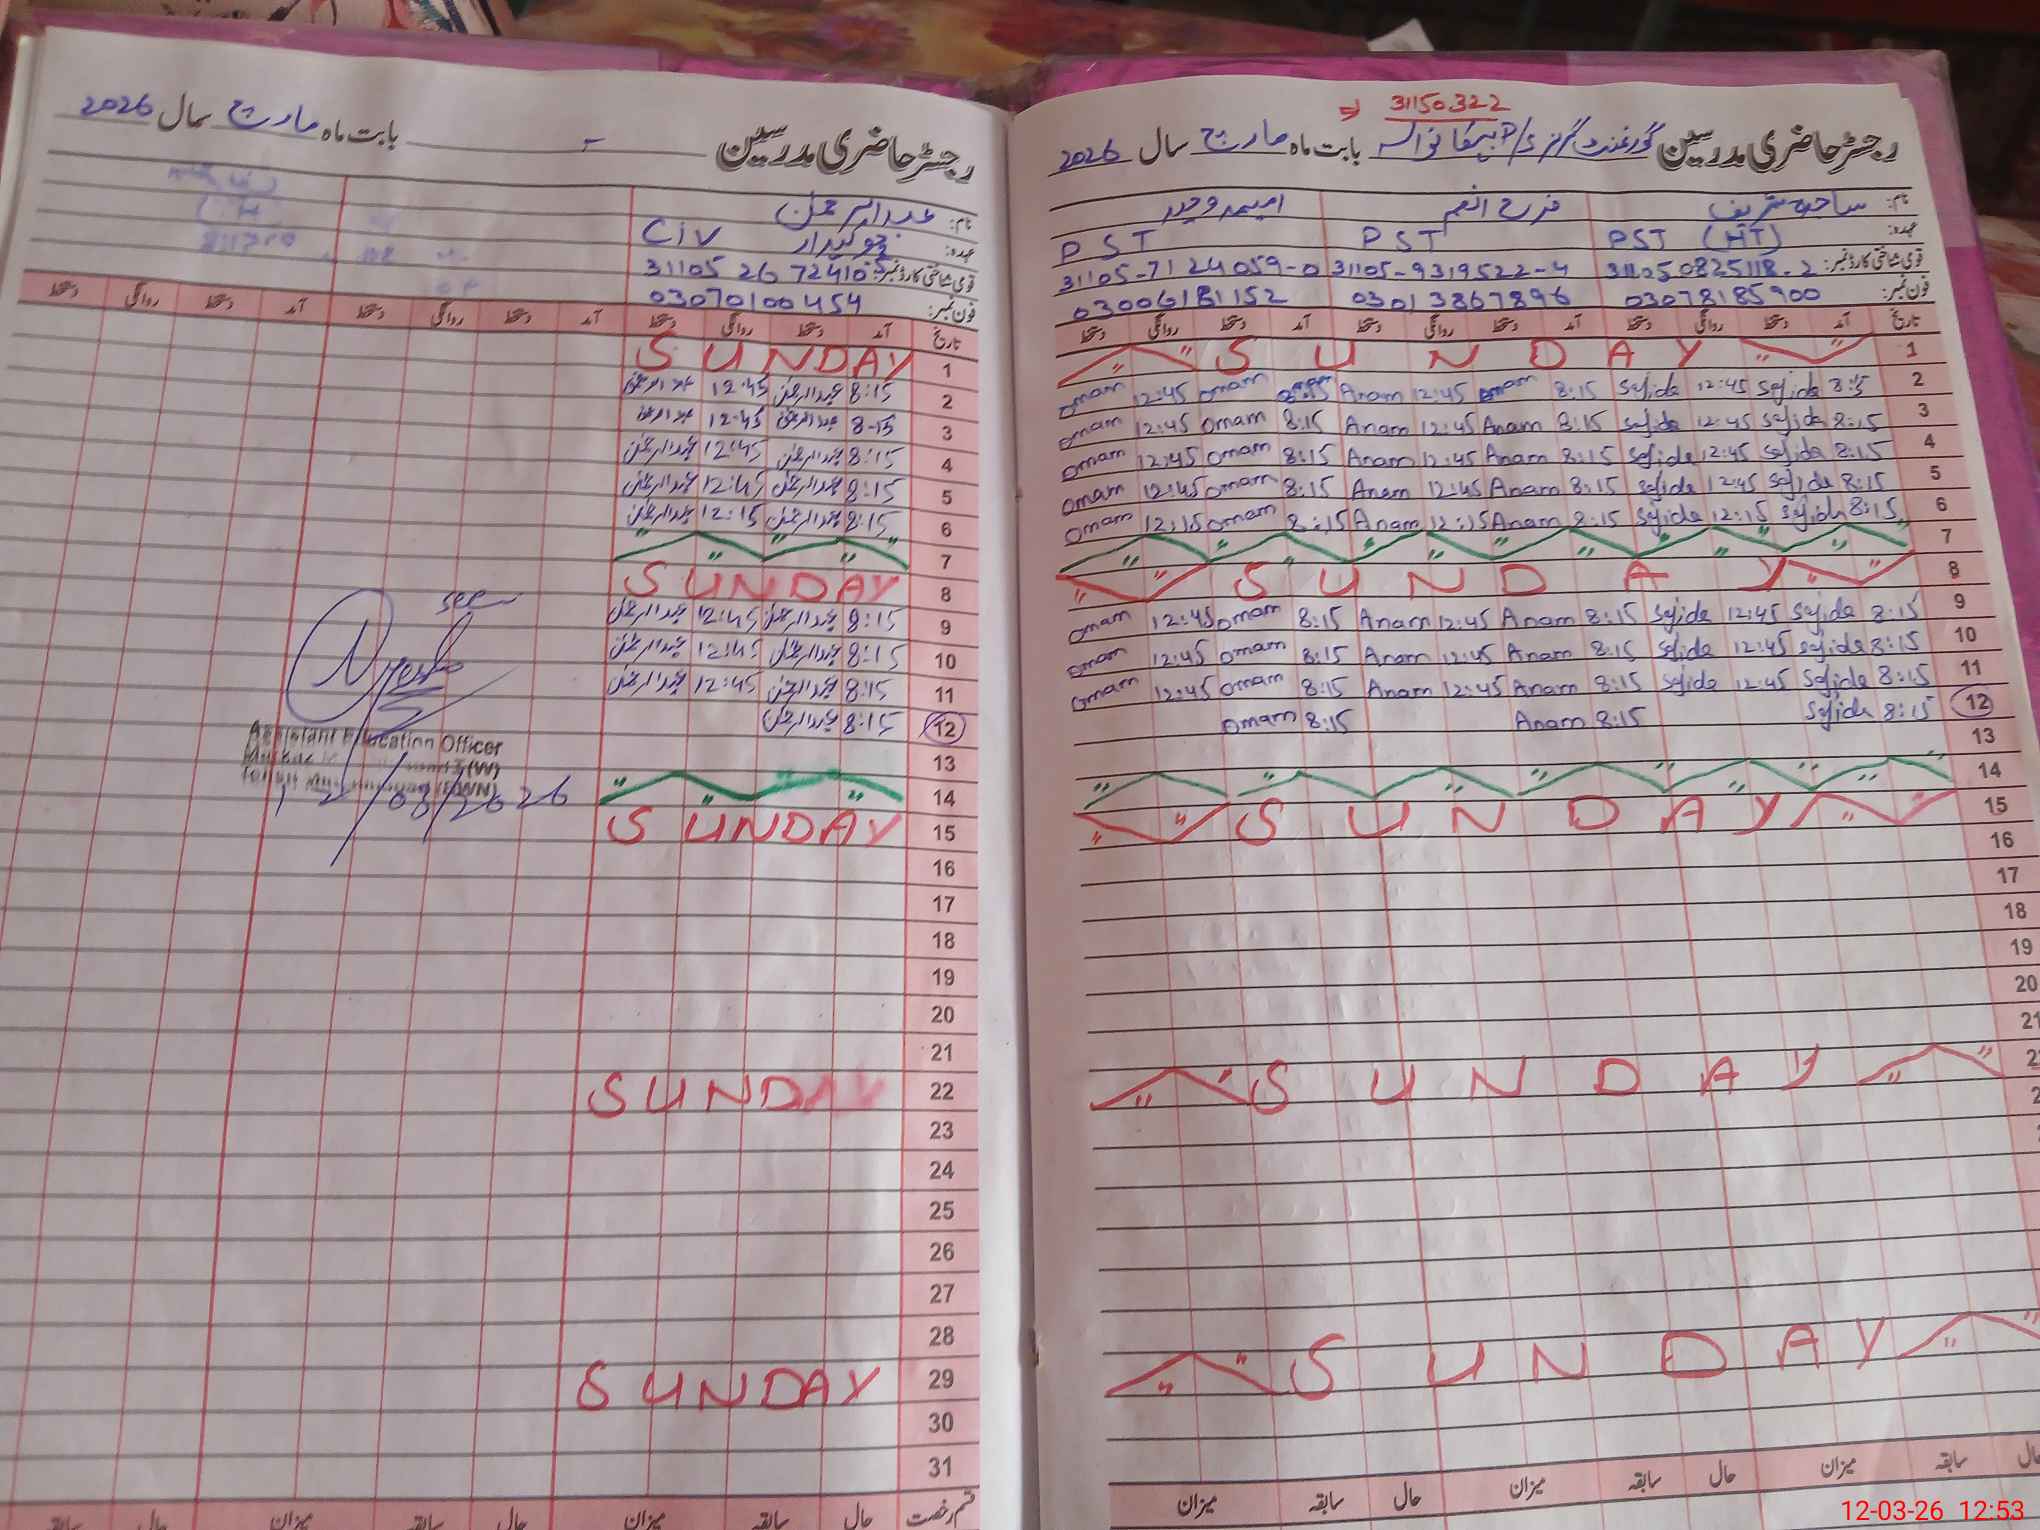 رجسٹر حاضری مدرسین بابت ماہ مارچ سال 2026
نام: عبدالرحمٰن
عہدہ: چوکیدار C iV
قومی شناختی کارڈ نمبر: 31105 26 72410
فون نمبر: 03070100454
تاریخ آمد دستخط روانگی دستخط آمد دستخط روانگی دستخط آمد دستخط روانگی دستخط
1 SUNDAY
2 8:15 عبدالرحمٰن 12:45 عبدالرحمٰن
3 8-15 عبدالرحمٰن 12:45 عبدالرحمٰن
4 8:15 عبدالرحمٰن 12:45 عبدالرحمٰن
5 8:15 عبدالرحمٰن 12:45 عبدالرحمٰن
6 8:15 عبدالرحمٰن 12:15 عبدالرحمٰن
7 " " " "
8 SUNDAY
9 8:15 عبدالرحمٰن 12:45 عبدالرحمٰن
10 8:15 عبدالرحمٰن 12:45 عبدالرحمٰن
11 8:15 عبدالرحمٰن 12:45 عبدالرحمٰن
12 8:15 عبدالرحمٰن
13
14 " " " "
15 SUNDAY
16
17
18
19
20
21
22 SUNDAY
23
24
25
26
27
28
29 SUNDAY
30
31
قسم رخصت حال سابقہ میزان حال سابقہ میزان حال سابقہ
seen
Assistant Education Officer
(W)
(BWN)
12/03/2026
31150322
رجسٹر حاضری مدرسین گورنمنٹ گرلز بابت ماہ مارچ سال 2026
نام: ساجدہ شریف فرح انعم امیمہ وحید
عہدہ: PST (HT) PST PST
قومی شناختی کارڈ نمبر: 311050825118-2 31105-9319522-4 31105-7124059-0
فون نمبر: 03078185900 03013867896 03006181152
تاریخ آمد دستخط روانگی دستخط آمد دستخط روانگی دستخط آمد دستخط روانگی دستخط
SUNDAY 1
Omam 12:45 Omam 8:15 Anam 12:45 8:15 Sajida 12:45 Sajida 8:15 2
Omam 12:45 Omam 8:15 Anam 12:45 Anam 8:15 Sajida 12:45 Sajida 8:15 3
Omam 12:45 Omam 8:15 Anam 12:45 Anam 8:15 Sajida 12:45 Sajida 8:15 4
Omam 12:45 Omam 8:15 Anam 12:45 Anam 8:15 Sajida 12:45 Sajida 8:15 5
Omam 12:15 Omam 8:15 Anam 12:15 Anam 8:15 Sajida 12:15 Sajida 8:15 6
" " " " " " " " " " " " 7
SUNDAY 8
Omam 12:45 Omam 8:15 Anam 12:45 Anam 8:15 Sajida 12:45 Sajida 8:15 9
Omam 12:45 Omam 8:15 Anam 12:45 Anam 8:15 Sajida 12:45 Sajida 8:15 10
Omam 12:45 Omam 8:15 Anam 12:45 Anam 8:15 Sajida 12:45 Sajida 8:15 11
Omam 8:15 Anam 8:15 Sajida 8:15 12
13
" " " " " " " " " " " " 14
SUNDAY 15
16
17
18
19
20
21
SUNDAY
SUNDAY
حال سابقہ میزان حال سابقہ میزان حال سابقہ میزان
12-03-26 12:53